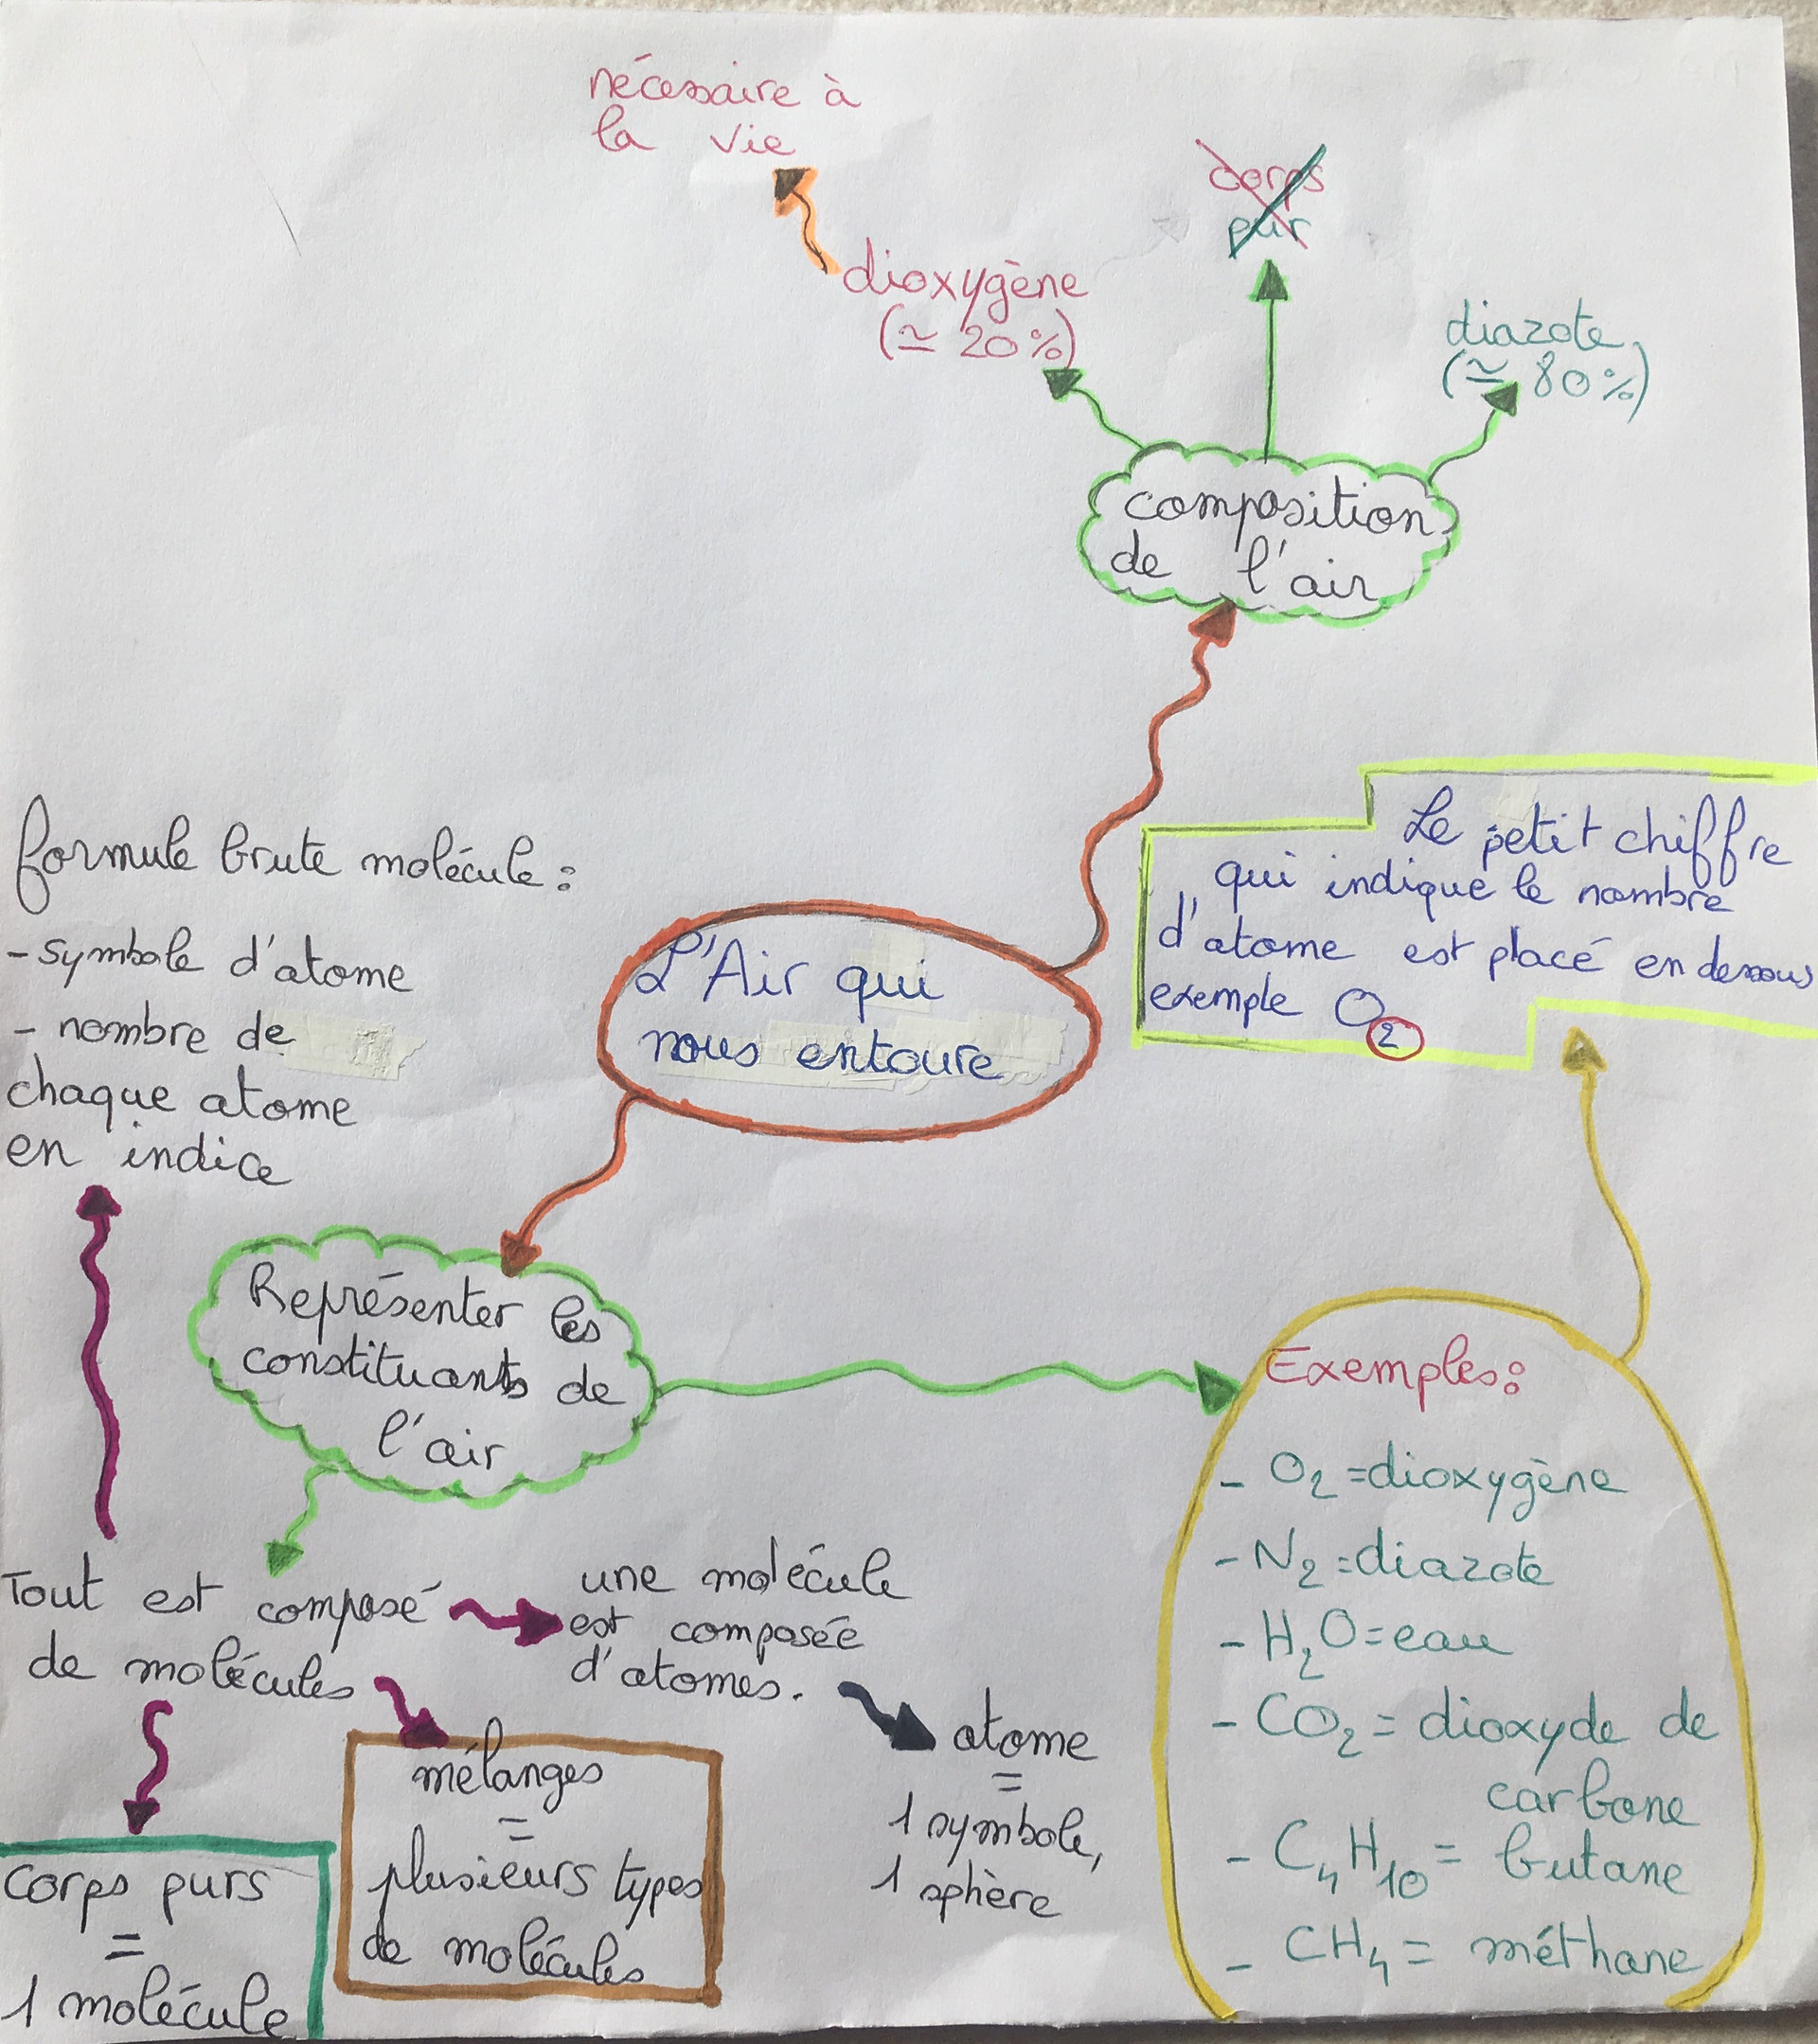 nécessaire à
la vie
corps
pur
dioxygène
(≃ 20%)
diazote
(≃ 80%)
composition
de l'air
Le petit chiffre
qui indique le nombre
d'atome est placé en dessous
exemple O₂
formule brute molécule :
- symbole d'atome
- nombre de
chaque atome
en indice
L'Air qui
nous entoure
Représenter les
constituants de
l'air
Exemples :
- O₂ = dioxygène
- N₂ = diazote
- H₂O = eau
- CO₂ = dioxyde de
carbone
- C₄H₁₀ = butane
- CH₄ = méthane
Tout est composé
de molécules
une molécule
est composée
d'atomes.
atome
=
1 symbole,
1 sphère
mélanges
=
plusieurs types
de molécules
corps purs
=
1 molécule